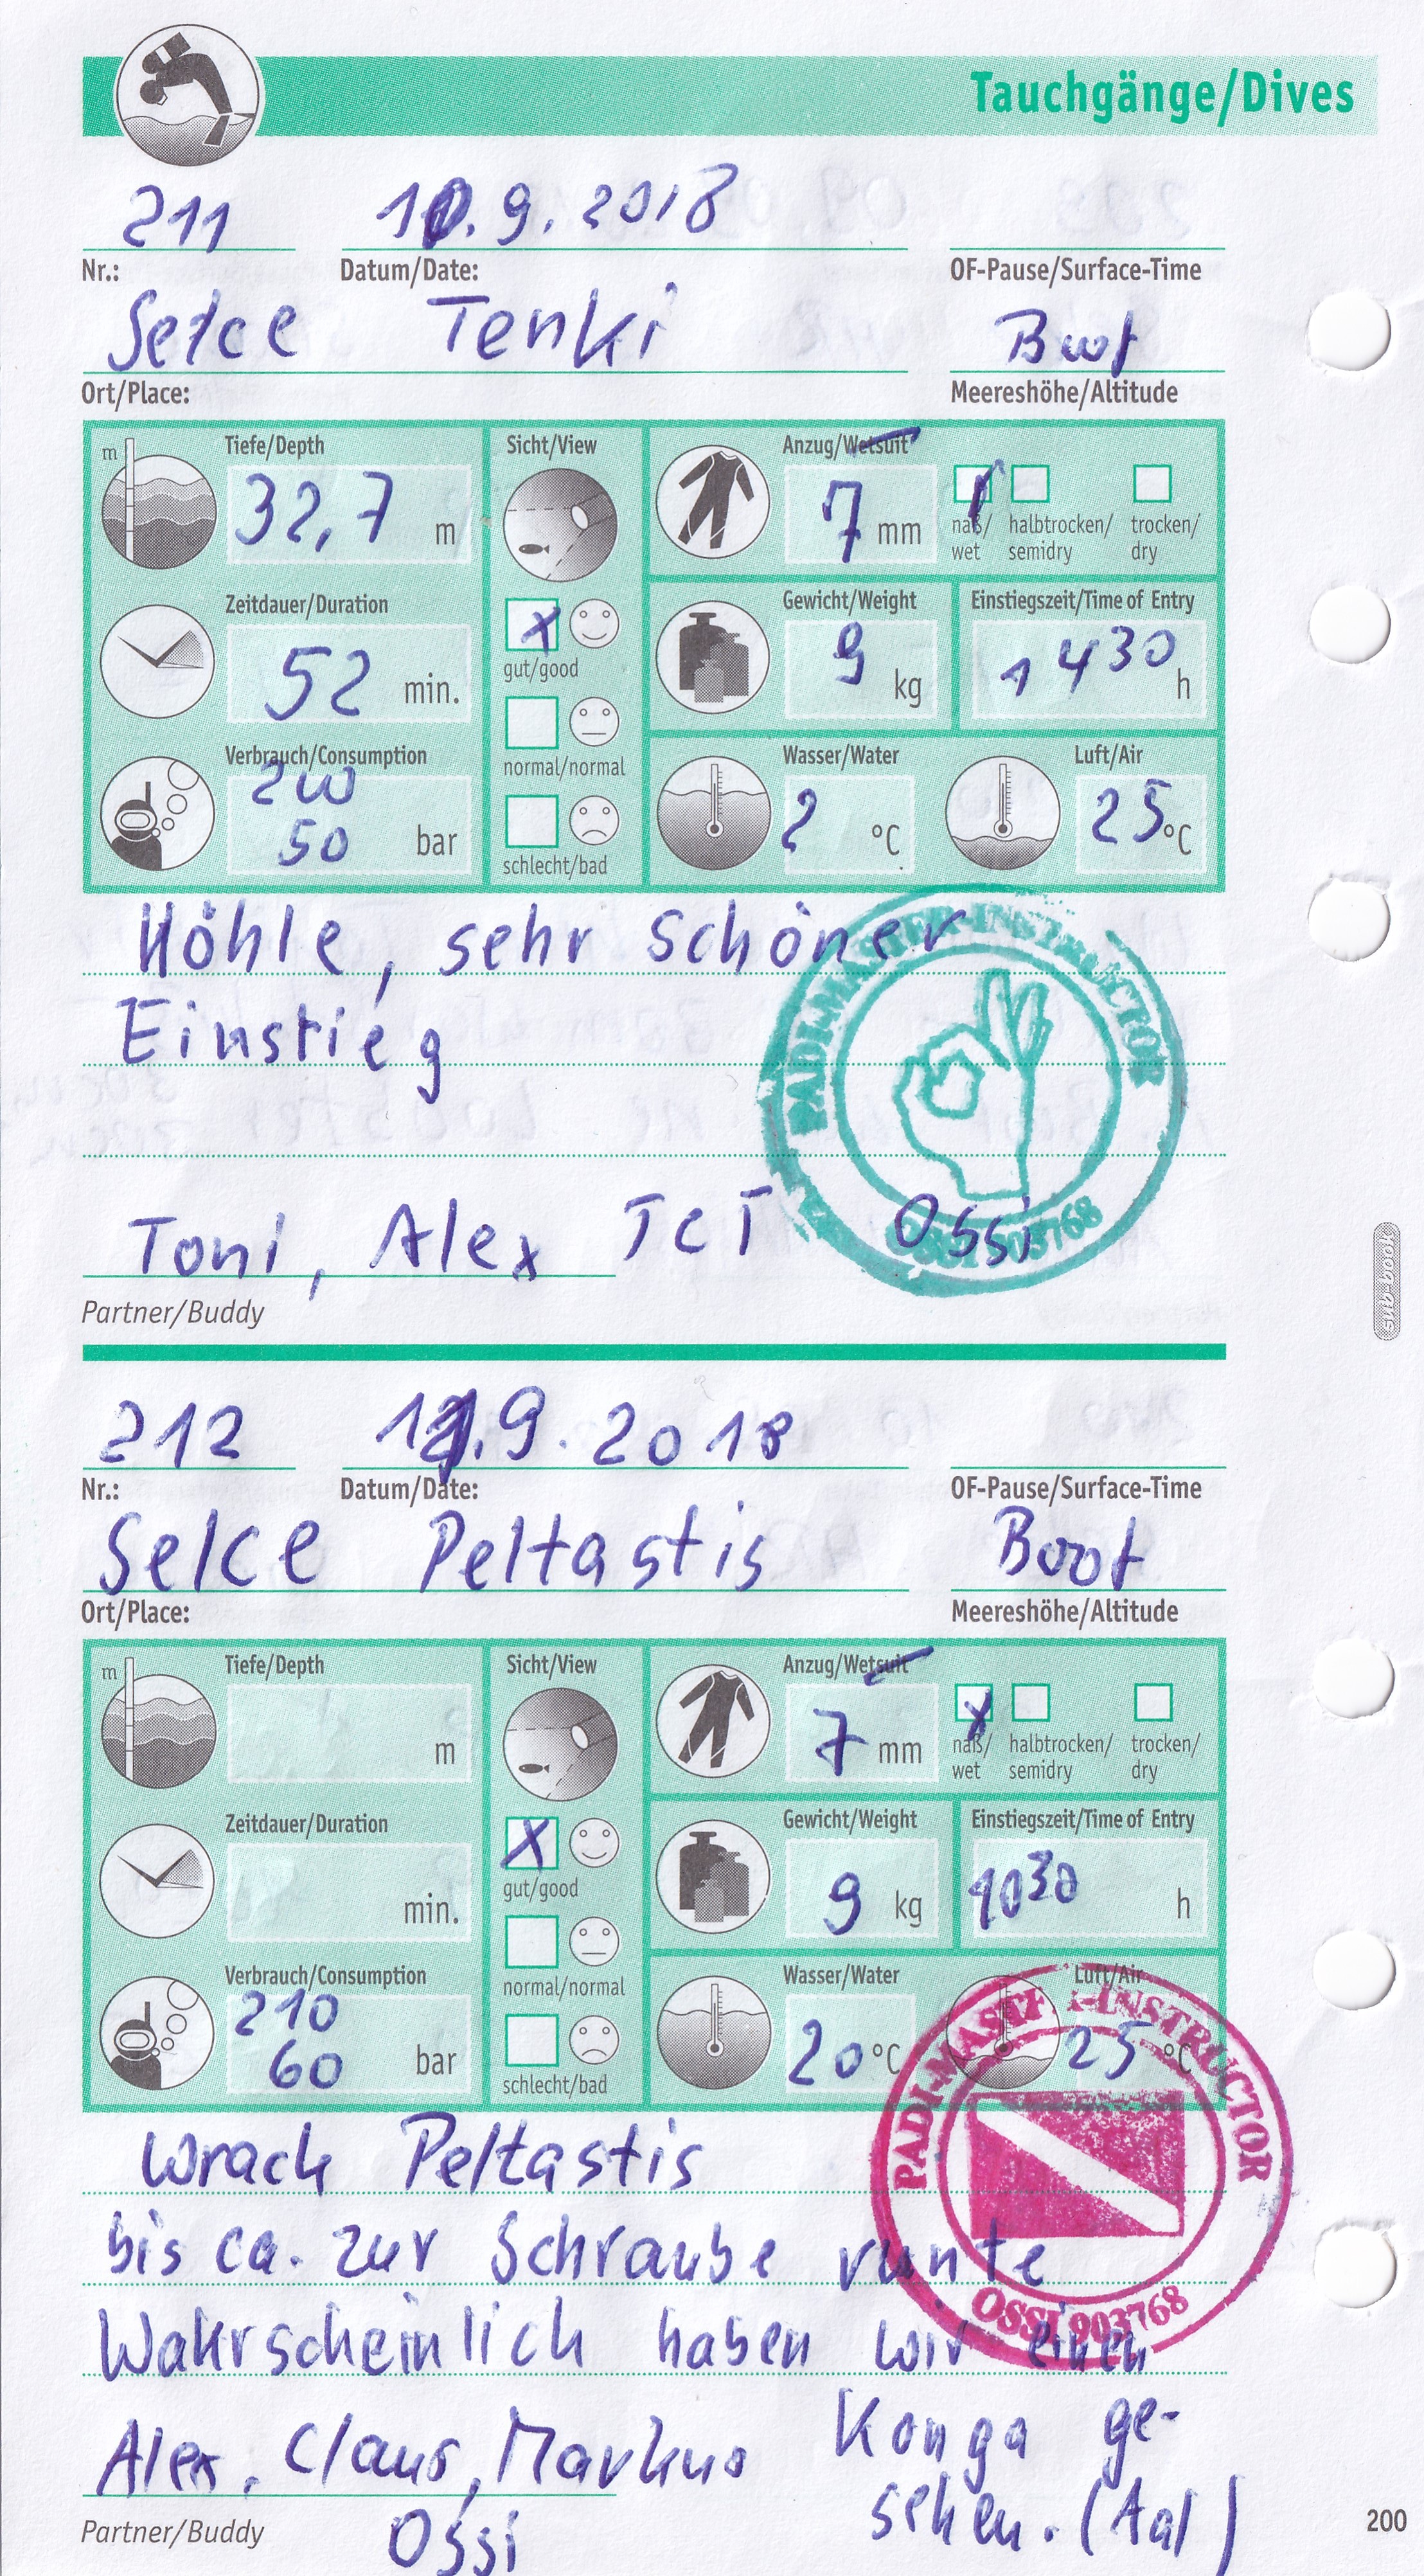 Tauchgänge/Dives
211 10.9.2018
Nr.: Datum/Date: OF-Pause/Surface-Time
Selce Tenki Boot
Ort/Place: Meereshöhe/Altitude
Tiefe/Depth Sicht/View Anzug/Wetsuit
m 32,7 m 7 mm naß/ halbtrocken/ trocken/
wet semidry dry
Zeitdauer/Duration Gewicht/Weight Einstiegszeit/Time of Entry
52 min. x gut/good 9 kg 14 30 h
normal/normal
Verbrauch/Consumption Wasser/Water Luft/Air
200
50 bar 2 °C 25 °C
schlecht/bad
Höhle, sehr schöner
Einstieg
PADI-MASTER-INSTRUCTOR
OSSI 903768
Toni, Alex TCT Ossi
Partner/Buddy
sub-book
212 11.9.2018
Nr.: Datum/Date: OF-Pause/Surface-Time
Selce Peltastis Boot
Ort/Place: Meereshöhe/Altitude
Tiefe/Depth Sicht/View Anzug/Wetsuit
m m 7 mm x naß/ halbtrocken/ trocken/
wet semidry dry
Zeitdauer/Duration Gewicht/Weight Einstiegszeit/Time of Entry
min. x gut/good 9 kg 10 30 h
normal/normal
Verbrauch/Consumption Wasser/Water Luft/Air
210
60 bar 20 °C 25 °C
schlecht/bad
PADI-MASTER-INSTRUCTOR
OSSI 903768
Wrack Peltastis
bis ca. zur Schraube runte
Wahrscheinlich haben wir einen
Konga ge-
sehen. (Aal)
Alex, Claus, Markus
Ossi
Partner/Buddy
200